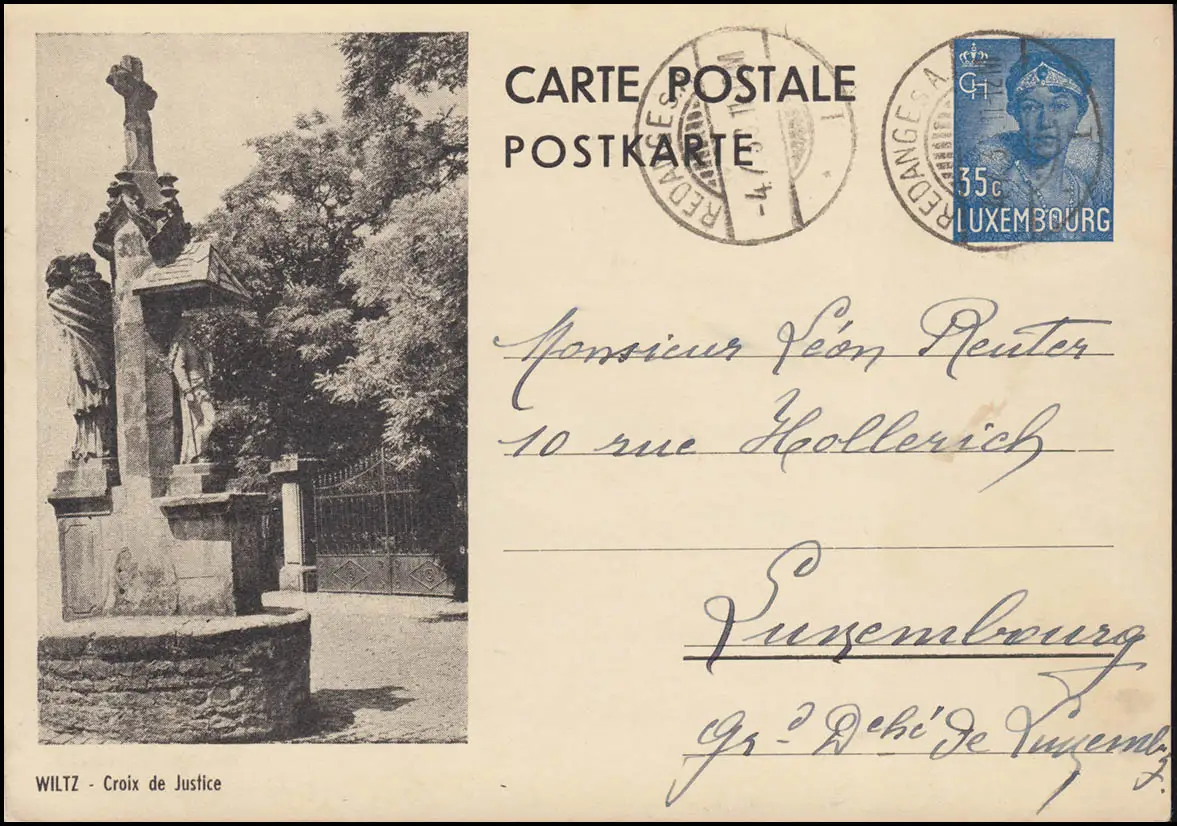 CARTE POSTALE
POSTKARTE
REDANGE S
-4.7.
REDANGE S A
GH
35c
LUXEMBOURG
Monsieur Léon Reuter
10 rue Hollerich
Luxembourg
Gr.d Dché de Luxembg.
WILTZ - Croix de Justice